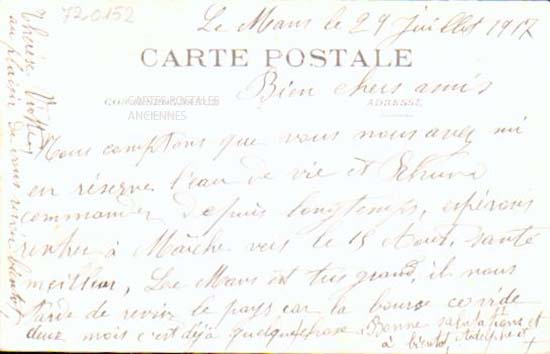 720152
Le Mans le 29 Juillet 1917
CARTE POSTALE
Bien chers amis
CARTES POSTALES
ANCIENNES
ADRESSE
Nous comptons que vous nous avez mi
en réserve l'eau de vie et Rhum
commander depuis longtemps, espérons
rentrer à Marche vers le 15 Aout, santé
meilleur, Le Mans est très grand, il nous
tarde de revoir le pays car la bourse ce vide
deux mois c'est déjà quelque chose. Bonne salutations et
à bientot Adolphe et
au plaisir de vous revoir bientot